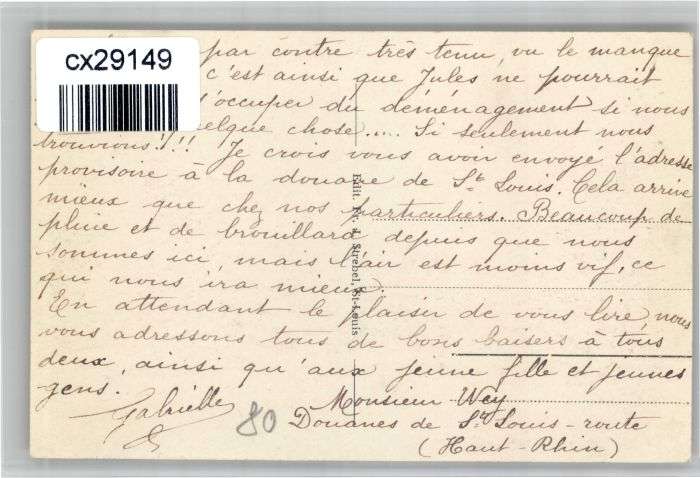 cx29149
par contre très tenu, vu le manque
c'est ainsi que Jules ne pourrait
s'occuper du déménagement si nous
elque chose..... Si seulement nous
trouvions!!! Je crois vous avoir envoyé l'adresse
provisoire à la douane de St Louis. Cela arrive
mieux que chez nos particuliers. Beaucoup de
pluie et de brouillard depuis que nous
sommes ici, mais l'air est moins vif, ce
qui nous ira mieux.
En attendant le plaisir de vous lire, nous
vous adressons tous de bons baisers à tous
deux, ainsi qu'aux jeune fille et jeunes
gens.
Gabrielle
80
Monsieur Wey
Douanes de St Louis-route
(Haut-Rhin)
Edit. Fr. J. Strebel, St-Louis